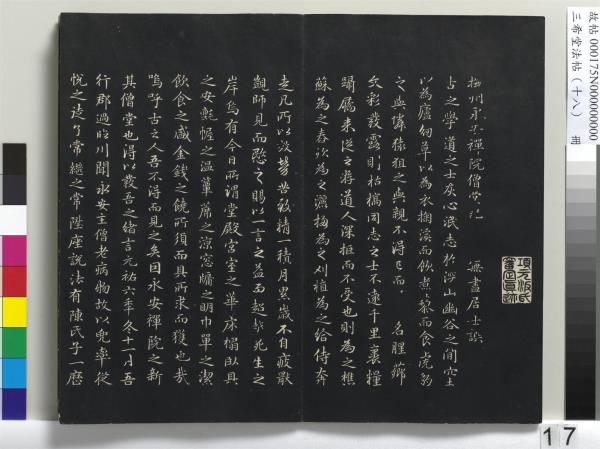 撫州永安禪院僧堂記
無盡居士撰
古之學道之士灰心泯志於深山幽谷之間穴土
以為廬紉草以為衣掬溪而飲煮藜而食虎豹
之與鄰猿狙之與親不得已而名腥薌
文彩發露則枯槁同志之士不遠千里裹糧
躡屩來從之遊道人深拒而不受也則為之樵
蘇為之舂炊為之灑掃為之刈植為之給侍奔
走凡所以效勞苦致精一積月累歲不自疲厭
覬師見而愍之賜以一言之益而超越死生之
岸烏有今日所謂堂殿宮室之華床榻臥具
之安氈幄之溫簟席之涼窗牖之明巾單之潔
飲食之盛金錢之饒所須而具所求而獲也哉
嗚呼古之人吾不得而見之矣因永安禪院之新
其僧堂也得以發吾之緒言元祐六年冬十一月吾
行郡過臨川聞永安主僧老病物故以兜率從
悅之徒了常繼之常陞座說法有陳氏子一歷
故帖 000175N000000000
三希堂法帖（十八） 冊
17